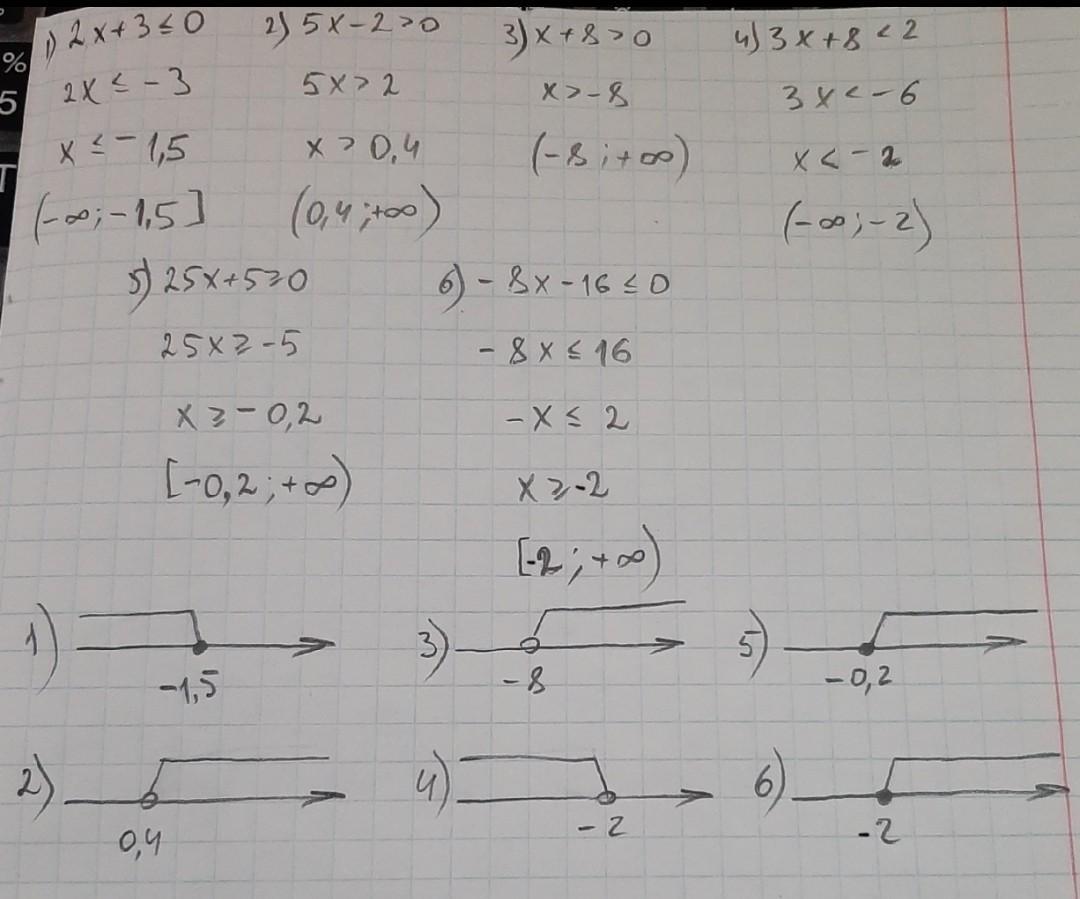 1) 2x+3≤0
2x ≤ -3
x ≤ -1,5
(-∞;-1,5]
2) 5x-2>0
5x>2
x > 0,4
(0,4;+∞)
3) x+8>0
x>-8
(-8;+∞)
4) 3x+8<2
3x<-6
x<-2
(-∞;-2)
5) 25x+5≥0
25x≥-5
x≥-0,2
[-0,2;+∞)
6) -8x-16≤0
-8x≤16
-x≤2
x≥-2
[-2;+∞)
1)
-1,5
3)
-8
5)
-0,2
2)
0,4
4)
-2
6)
-2
%
5
T